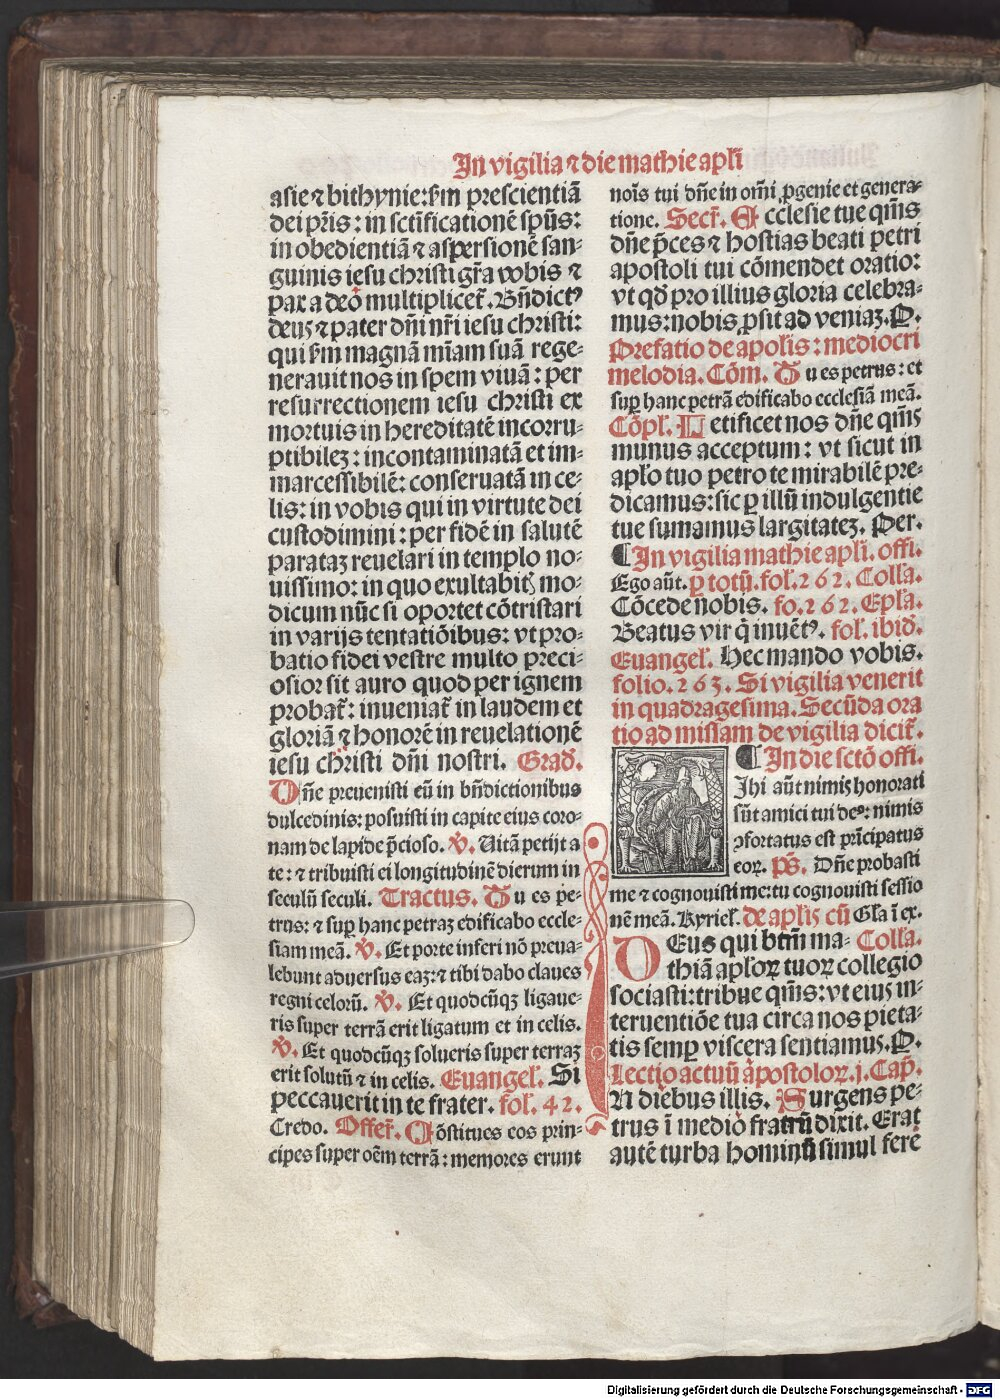 In vigilia ⁊ die mathie apłi
asie ⁊ bithynie: ẜm prescientiā
dei pr̄is: in sctificationē spūs:
in obedientiā ⁊ aspersionē san⸗
guinis iesu christi gr̄a vobis ⁊
pax a deo multiplicet᷑. Bn̄dictꝰ
deus ⁊ pater dn̄i nr̄i iesu christi:
qui ẜm magnā mīam suā rege⸗
nerauit nos in spem viuā: per
resurrectionem iesu christi ex
mortuis in hereditatē incorru⸗
ptibileʒ: incontaminatā et im⸗
marcessibilē: conseruatā in ce⸗
lis: in vobis qui in virtute dei
custodimini: per fidē in salutē
parataʒ reuelari in templo no⸗
uissimo: in quo exultabitꝭ mo⸗
dicum nūc si oportet cōtristari
in varijs tentatiōibus: vt pro⸗
batio fidei vestre multo preci⸗
osior sit auro quod per ignem
probat᷑: inueniat᷑ in laudem et
gloriā ⁊ honorē in reuelationē
iesu christi dn̄i nostri. Grad̄.
Dn̄e preuenisti eū in bn̄dictionibus
dulcedinis: posuisti in capite eius coro⸗
nam de lapide p̄cioso. ℣. Uitā petijt a
te: ⁊ tribuisti ei longitudinē dierum in
seculū seculi. Tractus. Tu es pe⸗
trus: ⁊ suꝑ hanc petraʒ edificabo eccle⸗
siam meā. ℣. Et porte inferi nō preua⸗
lebunt aduersus eaʒ: ⁊ tibi dabo claues
regni celorū. ℣. Et quodcūqʒ ligaue⸗
ris super terrā erit ligatum et in celis.
℣. Et quodcūqʒ solueris super terraʒ
erit solutū ⁊ in celis. Euangeł. Si
peccauerit in te frater. foł. 42.
Credo. Offert᷑. Cōstitues eos prin⸗
cipes super oēm terrā: memores erunt
nois̄ tui dn̄e in om̄i ꝓgenie et genera⸗
tione. Secr̄. Ecclesie tue qm̄s
dn̄e p̄ces ⁊ hostias beati petri
apostoli tui cōmendet oratio:
vt qd̄ pro illius gloria celebra⸗
mus: nobis ꝓsit ad veniaʒ. P.
Prefatio de apolis: mediocri
melodia. Cōm. Tu es petrus: et
suꝑ hanc petrā edificabo ecclesiā meā.
Cōpł. Letificet nos dn̄e qm̄s
munus acceptum: vt sicut in
apło tuo petro te mirabilē pre⸗
dicamus: sic ꝑ illū indulgentie
tue sumamus largitateʒ. Per.
¶ In vigilia mathie apłi. offi.
Ego aūt. ꝑ totū. foł. 262. Colła.
Cōcede nobis. fo. 262. Epła.
Beatus vir q̇ inuētꝰ. foł. ibid̄.
Euangeł. Hec mando vobis.
folio. 263. Si vigilia venerit
in quadragesima. Secūda ora
tio ad missam de vigilia dicit᷑.
¶ In die sctō offi.
Ihi aūt nimis honorati
sūt amici tui deꝰ: nimis
ꝯfortatus est prīcipatus
eoꝝ. Ps. Dn̄e probasti
me ⁊ cognouisti me: tu cognouisti sessio
nē meā. Kyrieł. de apłis cū Gła ī ex.
DEus qui btm̄ ma⸗ Colła.
thiā apłoꝝ tuoꝝ collegio
sociasti: tribue qm̄s: vt eius in⸗
teruentiōe tua circa nos pieta⸗
tis semꝑ viscera sentiamus. P.
Lectio actuū apostoloꝝ. j. Cap̄.
IN diebus illis. Surgens pe⸗
trus ī medio fratrū dixit. Erat
autē turba hominū simul ferē
Digitalisierung gefördert durch die Deutsche Forschungsgemeinschaft - DFG